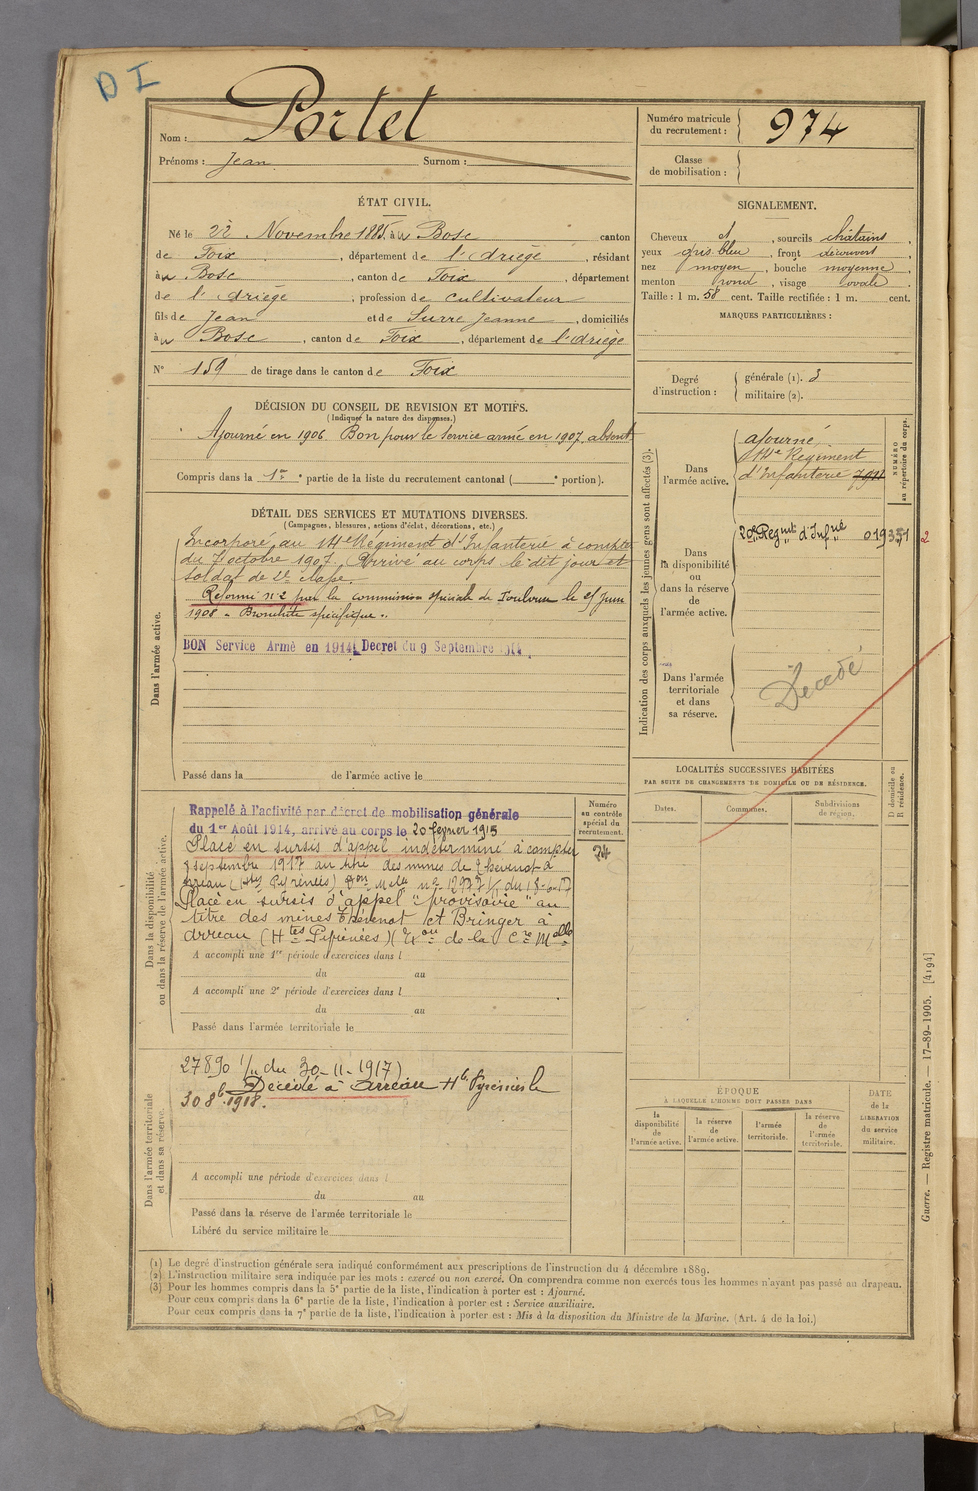 D I
Nom : Portet
Prénoms : Jean Surnom :
Numéro matricule
du recrutement : 974
Classe
de mobilisation :
ÉTAT CIVIL.
Né le 22 Novembre 1885, à Bosc canton
de Foix, département de l'Ariège, résidant
à Bosc, canton de Foix, département
de l'Ariège, profession de cultivateur
fils de Jean et de Surre Jeanne, domiciliés
à Bosc, canton de Foix, département de l'Ariège
N° 159 de tirage dans le canton de Foix
SIGNALEMENT.
Cheveux et, sourcils châtains,
yeux gris bleu, front découvert,
nez moyen, bouche moyenne,
menton rond, visage ovale
Taille : 1 m. 58 cent. Taille rectifiée : 1 m. cent.
MARQUES PARTICULIÈRES :
Degré
d'instruction :
générale (1). 3
militaire (2).
DÉCISION DU CONSEIL DE REVISION ET MOTIFS.
(Indiquer la nature des dispenses.)
Ajourné en 1906 Bon pour le service armé en 1907. absent
Compris dans la 1re partie de la liste du recrutement cantonal ( e portion).
DÉTAIL DES SERVICES ET MUTATIONS DIVERSES.
(Campagnes, blessures, actions d'éclat, décorations, etc.)
Dans l'armée active.
Incorporé au 14e Régiment d'Infanterie à compter
du 7 octobre 1907. Arrivé au corps le dit jour et
soldat de 2e classe.
Réformé n°2 par la commission spéciale de Toulouse le 25 Juin
1908 - Bronchite spécifique..
BON Service Armé en 1914 Decret du 9 Septembre 1914
Passé dans la de l'armée active le
Indication des corps auxquels les jeunes gens sont affectés (3).
NUMÉRO
au répertoire du corps.
Dans
l'armée active.
ajourné.
14e Régiment
d'Infanterie
Dans
la disponibilité
ou
dans la réserve
de
l'armée active.
20e Regmt d'Infrie 019351
2
Dans l'armée
territoriale
et dans
sa réserve.
Décédé
LOCALITÉS SUCCESSIVES HABITÉES
PAR SUITE DE CHANGEMENTS DE DOMICILE OU DE RÉSIDENCE.
Dates.
Communes.
Subdivisions
de région.
D domicile ou
R résidence.
Dans la disponibilité
ou dans la réserve de l'armée active.
Numéro
au contrôle
spécial du
recrutement.
Rappelé à l'activité par décret de mobilisation générale
du 1er Août 1914, arrivé au corps le 20 février 1915
Placé en sursis d'appel indéterminé à compter
7 septembre 1917 au titre des mines de Thévenot à
Arreau (Htes Pyrénées)
Placé en sursis d'appel "provisoire" au
titre des mines Thévenot et Bringer à
Arreau (Htes Pyrénées) (Exon de la Cre Mlle
A accompli une 1re période d'exercices dans l
du au
A accompli une 2e période d'exercices dans l
du au
Passé dans l'armée territoriale le
Dans l'armée territoriale
et dans sa réserve.
27890 1/11 du 30-11-1917)
Décédé à Arreau Htes Pyrénées le
30 8b 1918.
A accompli une période d'exercices dans l
du au
Passé dans la réserve de l'armée territoriale le
Libéré du service militaire le
ÉPOQUE
À LAQUELLE L'HOMME DOIT PASSER DANS
la
disponibilité
de
l'armée active.
la réserve
de
l'armée active.
l'armée
territoriale.
la réserve
de
l'armée
territoriale.
DATE
de la
LIBÉRATION
du service
militaire.
(1) Le degré d'instruction générale sera indiqué conformément aux prescriptions de l'instruction du 4 décembre 1889.
(2) L'instruction militaire sera indiquée par les mots : exercé ou non exercé. On comprendra comme non exercés tous les hommes n'ayant pas passé au drapeau.
(3) Pour les hommes compris dans la 5e partie de la liste, l'indication à porter est : Ajourné.
Pour ceux compris dans la 6e partie de la liste, l'indication à porter est : Service auxiliaire.
Pour ceux compris dans la 7e partie de la liste, l'indication à porter est : Mis à la disposition du Ministre de la Marine. (Art. 4 de la loi.)
Guerre. — Registre matricule. — 17-89-1905. [4194]